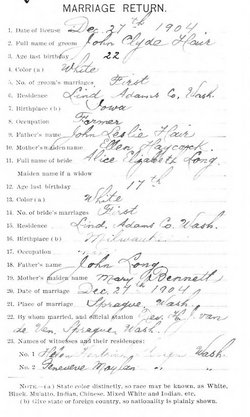 MARRIAGE RETURN.
1. Date of license Dec 27th 1904
2. Full name of groom John Clyde Hair
3. Age last birthday 22
4. Color (a) White
5. No. of groom's marriages First
6. Residence Lind Adams Co. Wash.
7. Birthplace (b) Iowa
8. Occupation Farmer
9. Father's name John Leslie Hair
10. Mother's maiden name Ellen Haycock
11. Full name of bride Alice Elizabeth Long
Maiden name if a widow
12. Age last birthday 17th
13. Color (a) White
14. No. of bride's marriages First
15. Residence Lind, Adams Co. Wash.
16. Birthplace (b)
17. Occupation
18. Father's name John Long
19. Mother's maiden name Mary Bennett
20. Date of marriage Dec. 27th 1904
21. Place of marriage Sprague, Wash.
22. By whom married, and official station van
de Ven, Sprague, Wash.
23. Names of witnesses and their residences:
No. 1 Wash.
No. 2 Genevieve
NOTE.—(a) State color distinctly, so race may be known, as White,
Black, Mulatto, Indian, Chinese, Mixed White and Indian, etc.
(b) Give state or foreign country, so nationality is plainly shown.